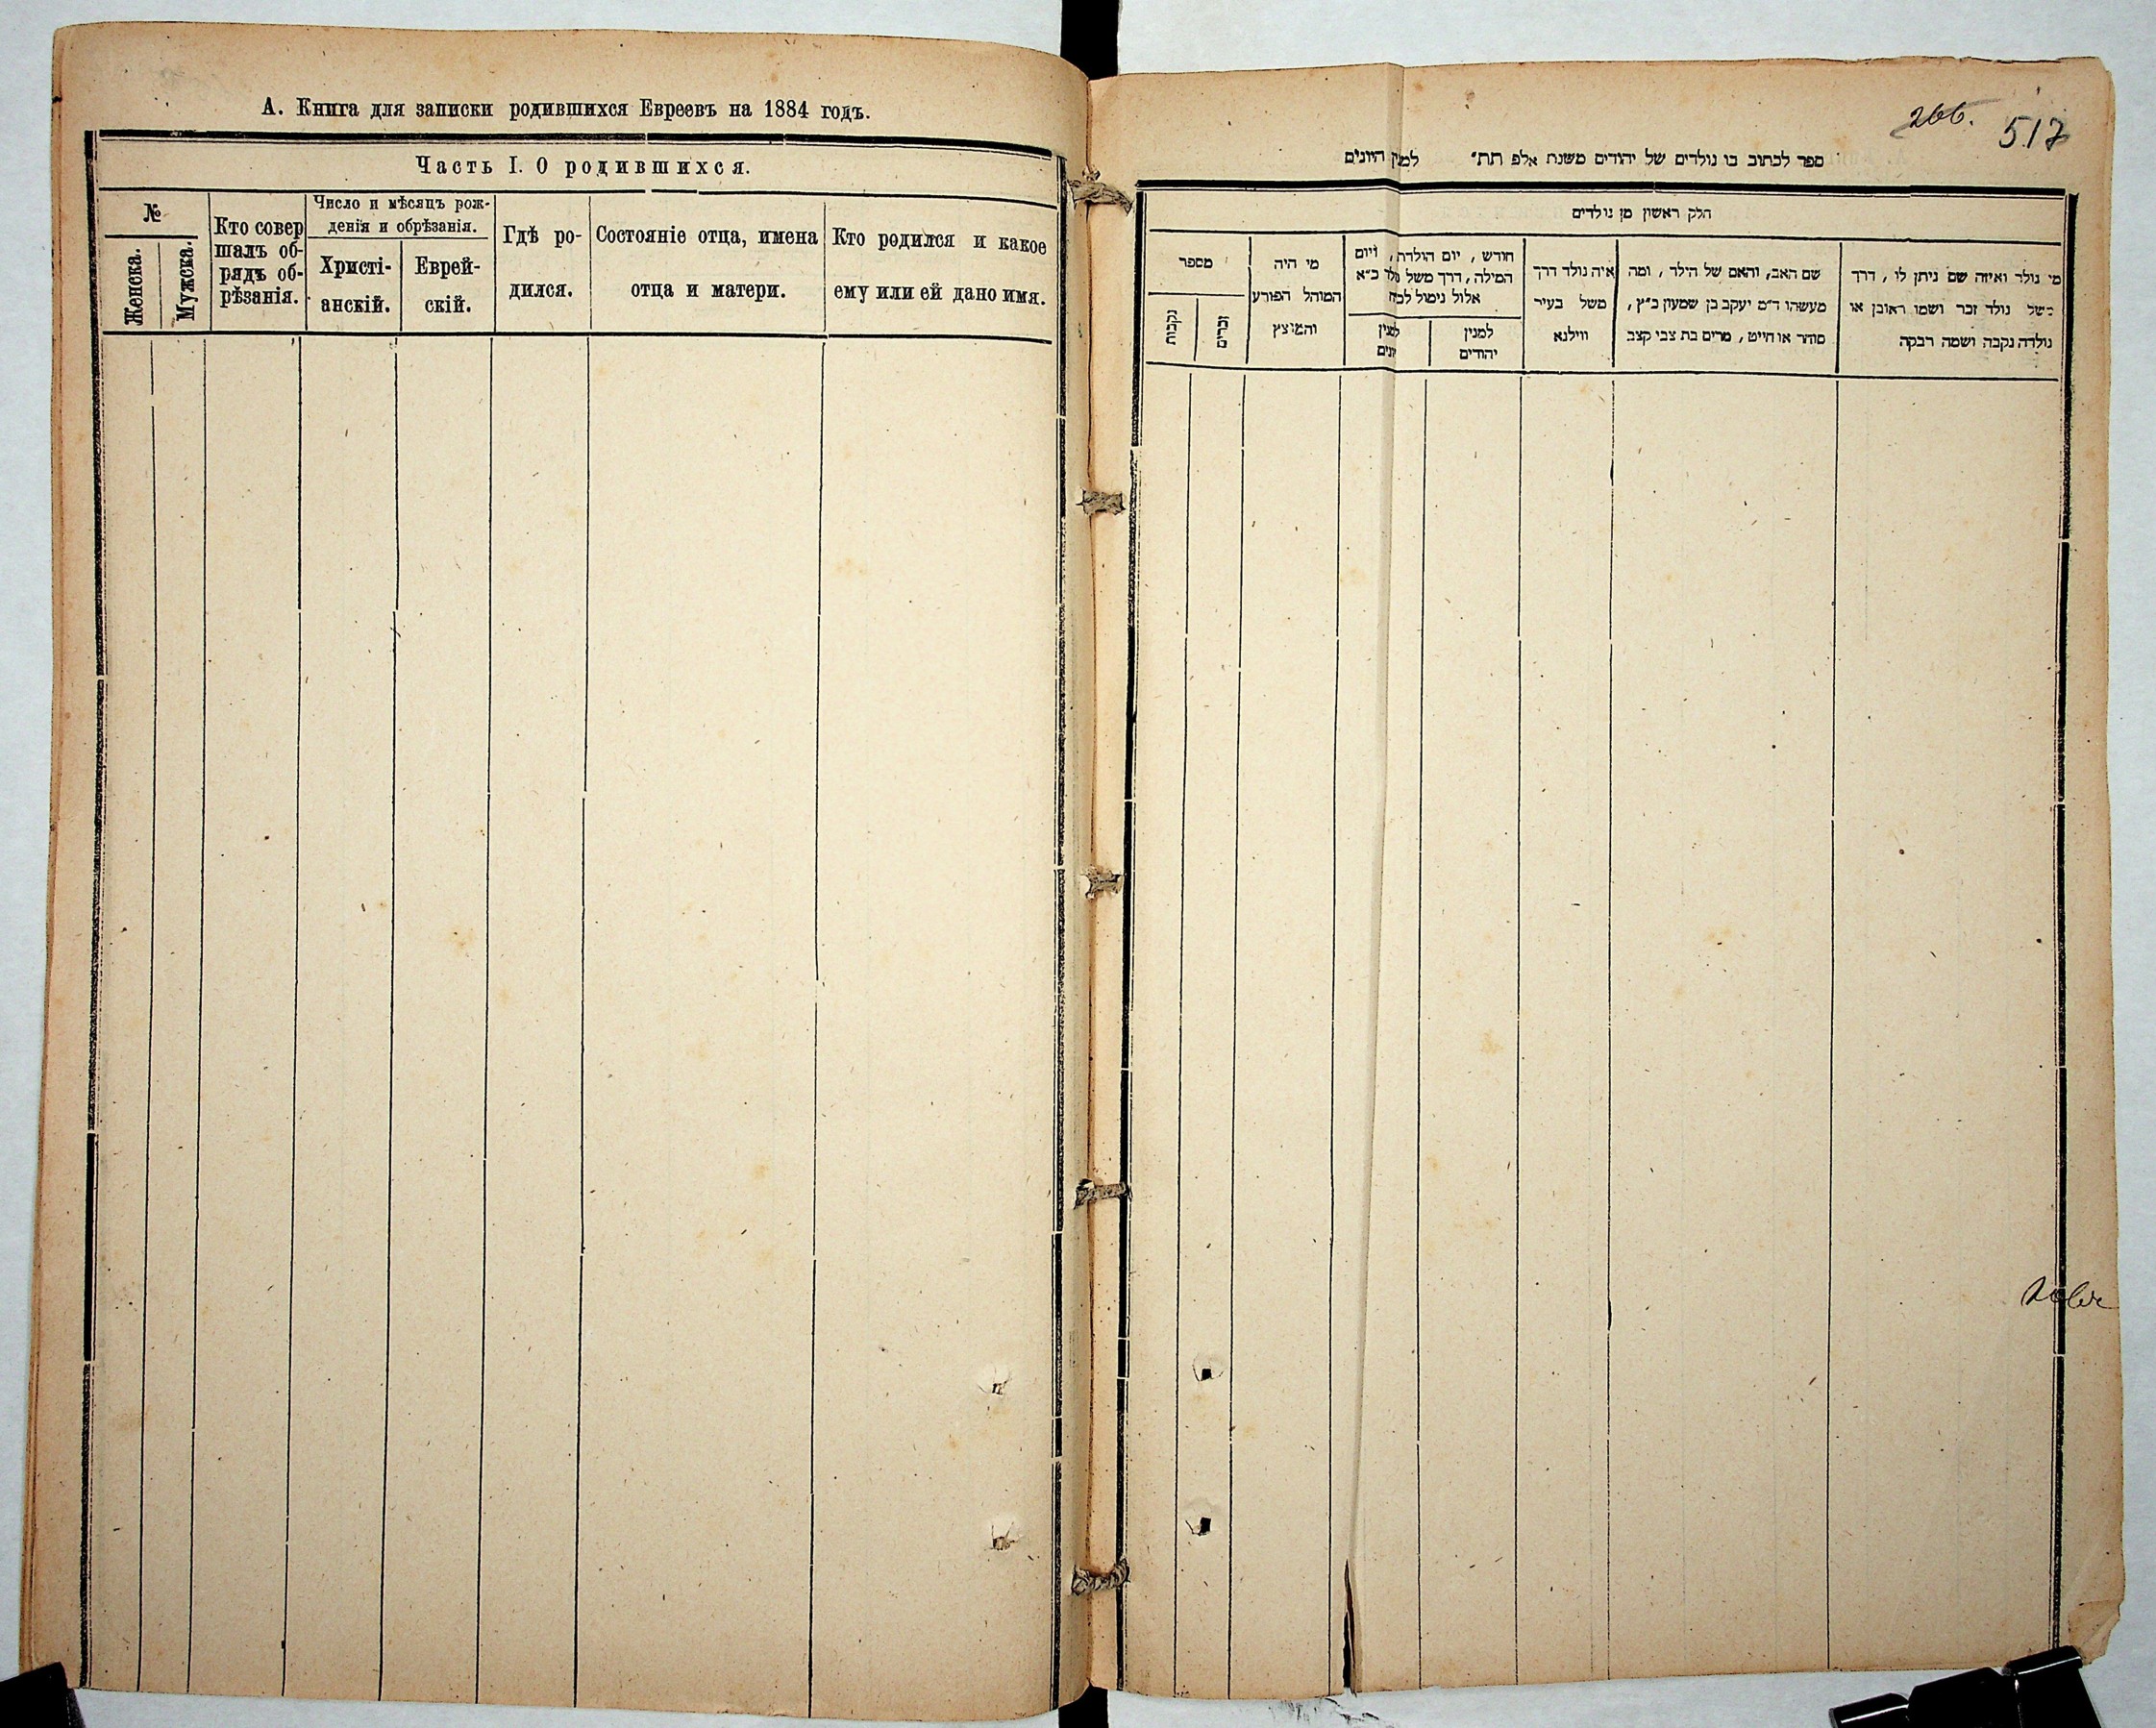 А. Книга для записки родившихся Евреевъ на 1884 годъ.
Часть I. О родившихся.
№
Женска.
Мужска.
Кто совер
шалъ об-
рядъ об-
рѣзанія.
Число и мѣсяцъ рож-
денія и обрѣзанія.
Христі-
анскій.
Еврей-
скій.
Гдѣ ро-
дился.
Состояніе отца, имена
отца и матери.
Кто родился и какое
ему или ей дано имя.
266.
517
ספר לכתוב בו נולדים של יהודים משנת אלפ תת״ למנין היונים
חלק ראשון מן נולדים
מי נולד ואיזה שם ניתן לו, דרך
משל נולד זכר ושמו ראובן או
נולדה נקבה ושמה רבקה
שם האב, והאם של הילד, ומה
מעשהו ד״מ יעקב בן שמעון כ״ץ,
סוחר או חייט, מרים בת צבי קצב
איה נולד דרך
משל בעיר
ווילנא
חודש, יום הולדת, ויום
המילה, דרך משל נולד כ״א
אלול נימול לכח
למנין
יהודים
למנין
יונים
מי היה
המוהל הפורע
והמוצץ
מספר
זכרים
נקבות